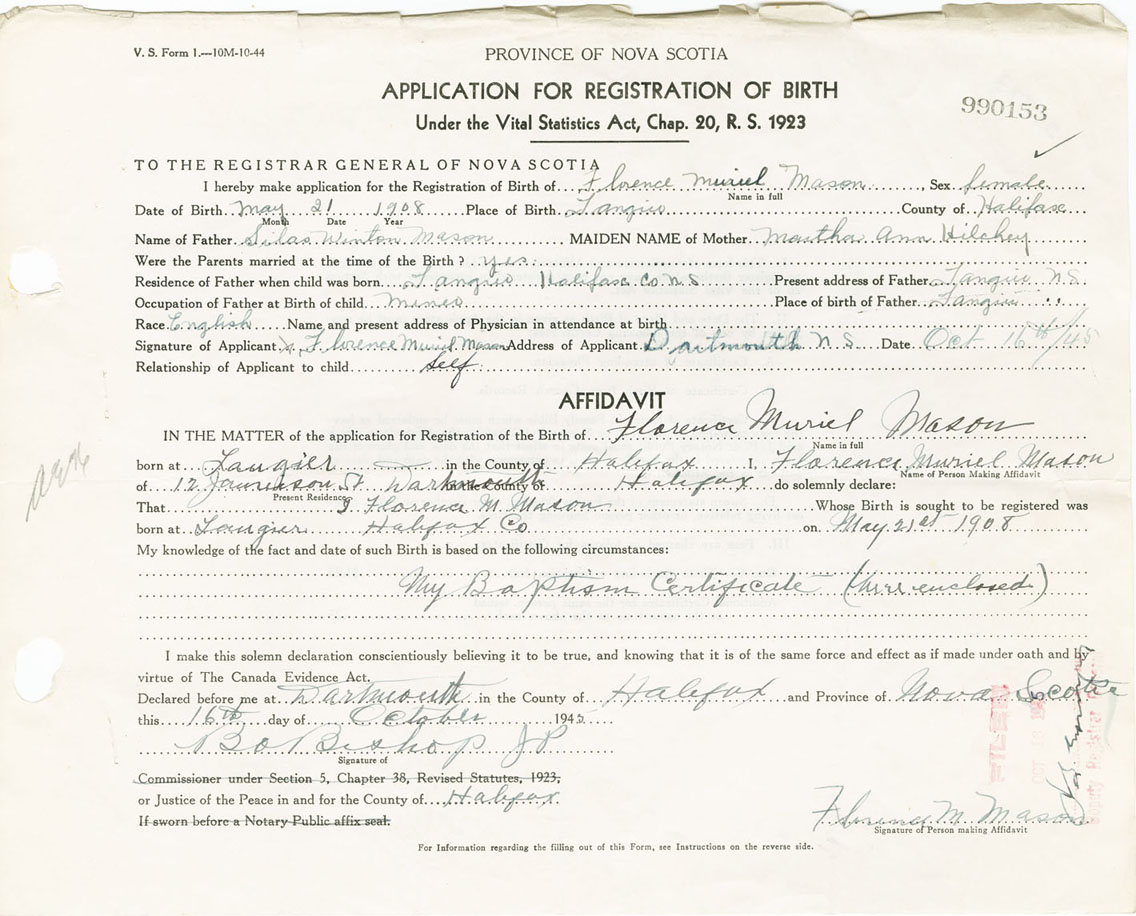 V. S. Form 1.—10M-10-44
PROVINCE OF NOVA SCOTIA
APPLICATION FOR REGISTRATION OF BIRTH
Under the Vital Statistics Act, Chap. 20, R. S. 1923
990153
TO THE REGISTRAR GENERAL OF NOVA SCOTIA
I hereby make application for the Registration of Birth of Florence Muriel Mason, Sex female
Name in full
Date of Birth May 21 1908 Place of Birth Tangier County of Halifax
Month Date Year
Name of Father Silas Winton Mason MAIDEN NAME of Mother Martha Ann Hilchey
Were the Parents married at the time of the Birth? yes
Residence of Father when child was born Tangier Halifax Co N S Present address of Father Tangier N S
Occupation of Father at Birth of child Place of birth of Father Tangier ..
Race English Name and present address of Physician in attendance at birth
Signature of Applicant x Florence Muriel Mason Address of Applicant Dartmouth N S Date Oct 16th/45
Relationship of Applicant to child self
AFFIDAVIT
IN THE MATTER of the application for Registration of the Birth of Florence Muriel Mason
Name in full
born at Tangier in the County of Halifax I, Florence Muriel Mason
Name of Person Making Affidavit
of 12 St. Dartmouth in the County of Halifax do solemnly declare:
Present Residence
That I Florence M. Mason Whose Birth is sought to be registered was
born at Tangier Halifax Co on May 21st 1908
My knowledge of the fact and date of such Birth is based on the following circumstances:
My Baptism Certificate (here enclosed)
I make this solemn declaration conscientiously believing it to be true, and knowing that it is of the same force and effect as if made under oath and by
virtue of The Canada Evidence Act.
Declared before me at Dartmouth in the County of Halifax and Province of Nova Scotia
this 16th day of October 1945
B O Bishop JP
Signature of
Commissioner under Section 5, Chapter 38, Revised Statutes, 1923,
or Justice of the Peace in and for the County of Halifax
If sworn before a Notary Public affix seal.
Florence M Mason
Signature of Person making Affidavit
FILED
OCT 18
Deputy Registrar
For Information regarding the filling out of this Form, see Instructions on the reverse side.